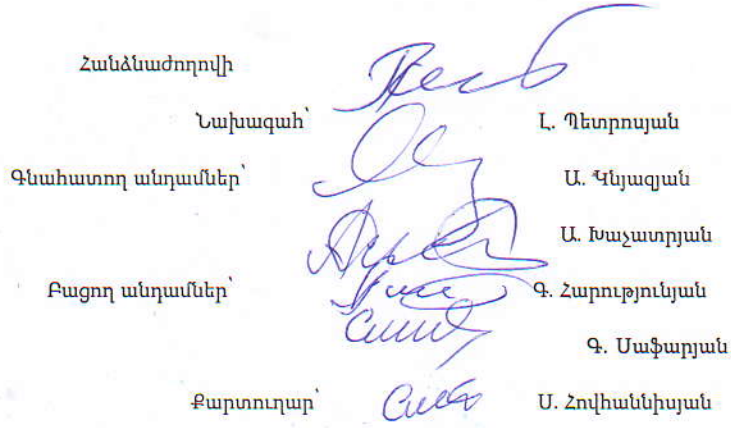 Հանձնաժողովի
Նախագահ՝ Լ. Պետրոսյան
Գնահատող անդամներ՝ Ա. Կնյազյան
Ա. Խաչատրյան
Բացող անդամներ՝ Գ. Հարությունյան
Գ. Սաֆարյան
Քարտուղար՝ Ս. Հովհաննիսյան